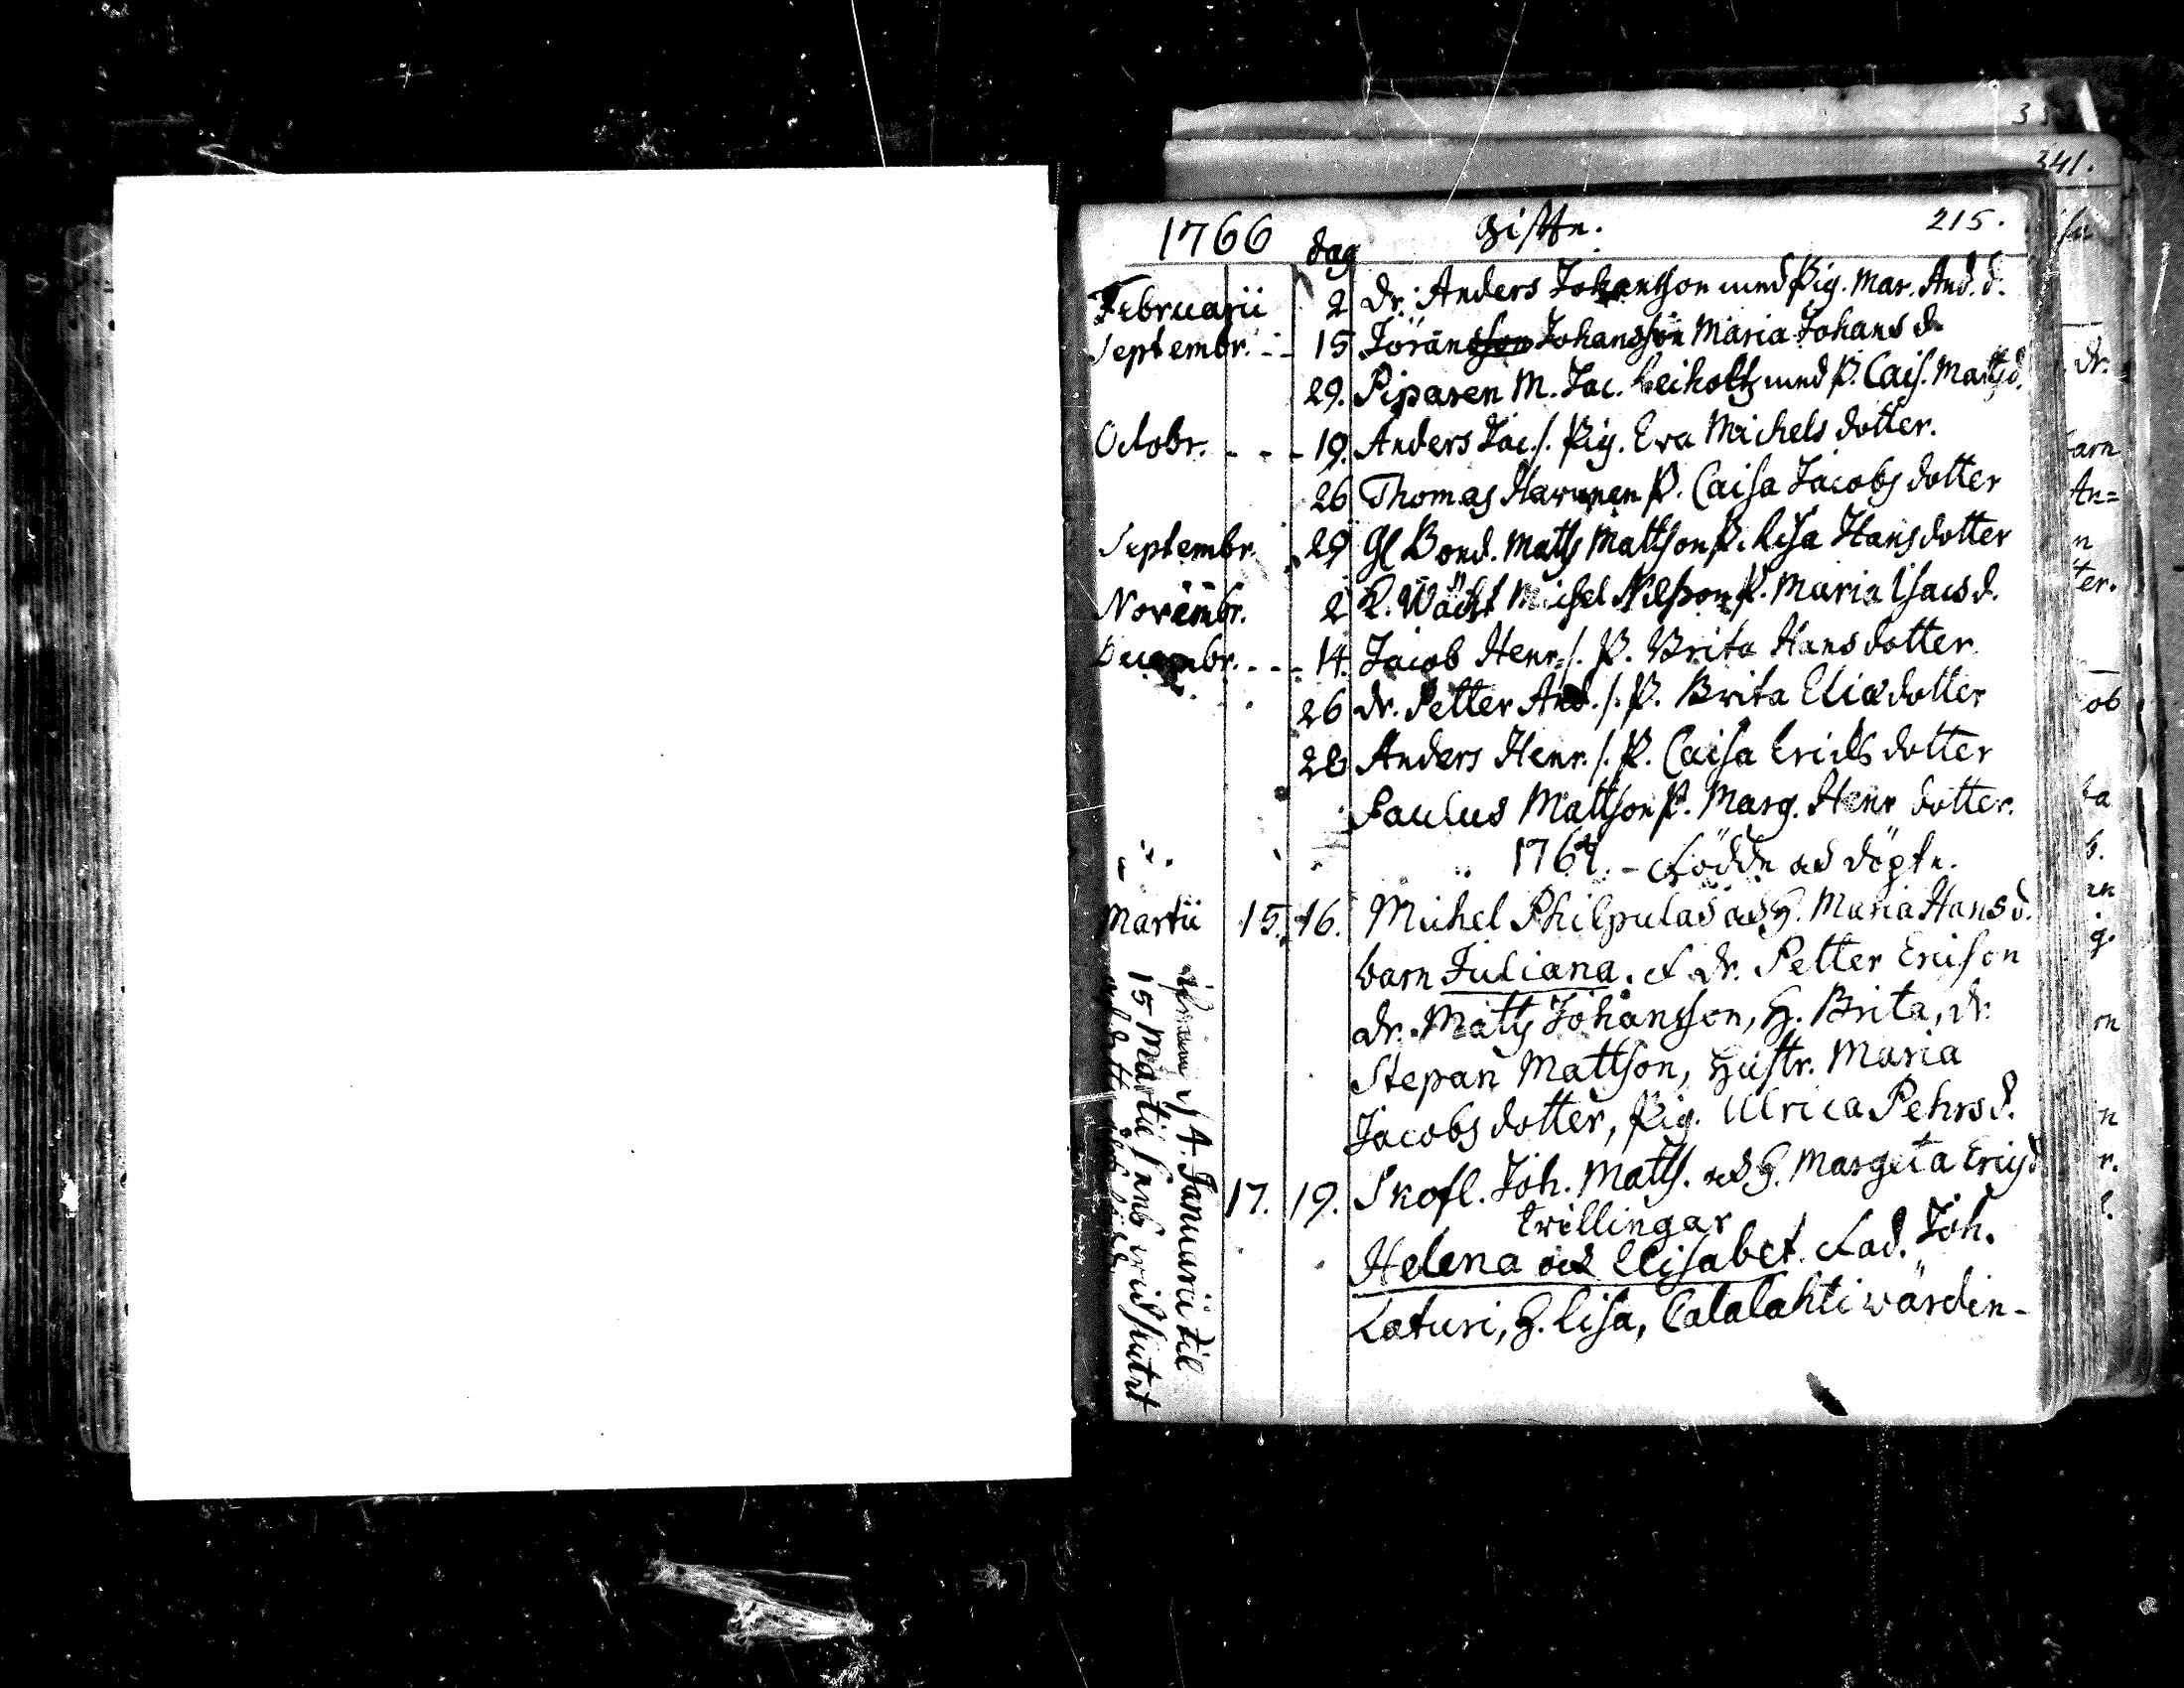 1766 dag Gifte. 215.
Februarii 2 Dr. Anders Johantson med Pig. Mar. And. d.
Septembr. 15 Jöransson Johansson Maria Johans d.
29. Piparen M. Jac. Leiholtz med P. Cais. Matsd.
Octobr. - - - 19. Anders Jac. s. Pig. Eva Michels dotter.
26 Thomas P. Caisa Jacobs dotter
Septembr. 29 Gl Bond. Matts Mattson P. Lisa Hans dotter
Novembr. 2 R. Wacht Michel Nilsson P. Maria Isacs d.
Decembr. - - - 14. Jacob Henr. s. P. Brita Hans dotter
26 dr. Petter And. s. P. Brita Elia dotter
28 Anders Henr. s. P. Caisa Erichs dotter
Paulus Mattson P. Marg. Henr dotter.
1767. - Födde och döpte.
Martii 15. 16. Michel Philpulas och H. Maria Hans d.
barn Juliana. F. Dr. Petter Ericson
dr. Matts Johansson, H. Brita, dr.
Stepan Mattson, Hustr. Maria
Jacobs dotter, Pig. Ulrica Pehrs d.
17. 19. Skofl. Joh. Matts. och H. Margeta Ericsd.
twillingar
Helena och Elisabet. Fad. Joh.
Laturi, H. Lisa, Calalahti wärdin-
ifrån d. 14. Januarii til
15 Martii
341.